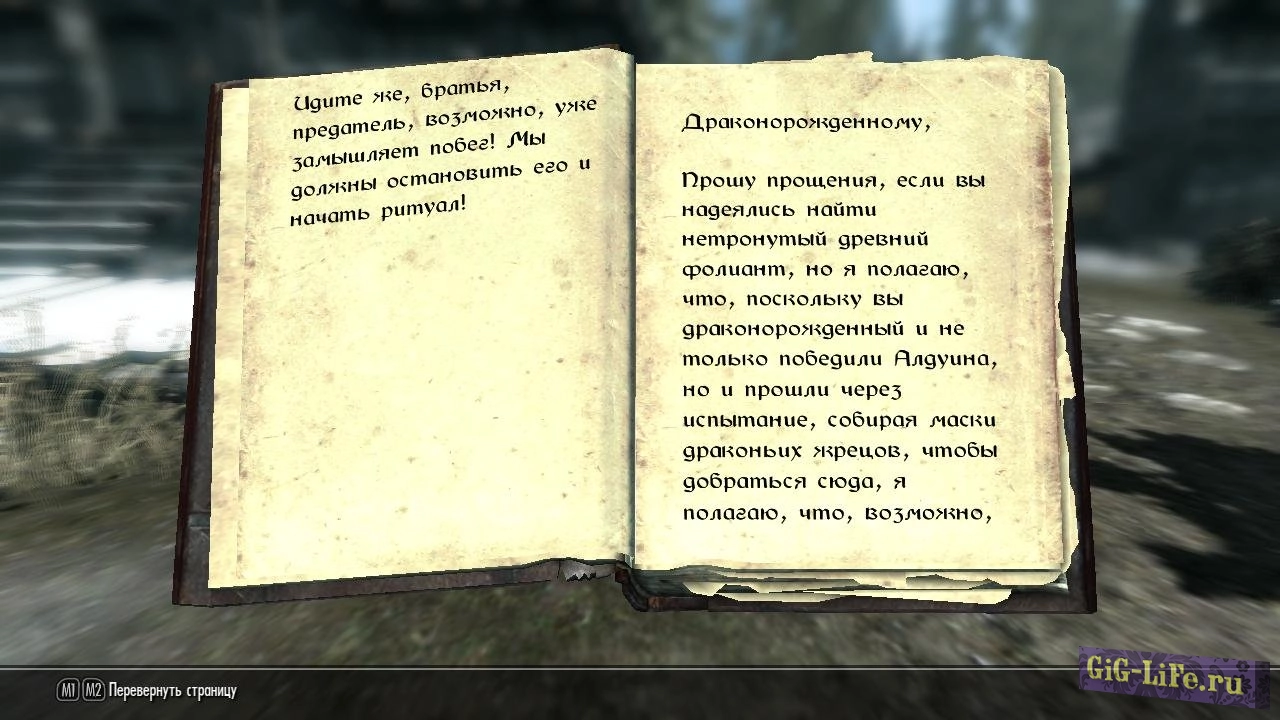 Идите же, братья,
предатель, возможно, уже
замышляет побег! Мы
должны остановить его и
начать ритуал!
Драконорожденному,
Прошу прощения, если вы
надеялись найти
нетронутый древний
фолиант, но я полагаю,
что, поскольку вы
драконорожденный и не
только победили Алдуина,
но и прошли через
испытание, собирая маски
драконьих жрецов, чтобы
добраться сюда, я
полагаю, что, возможно,
M1 M2 Перевернуть страницу
GiG-LiFe.ru